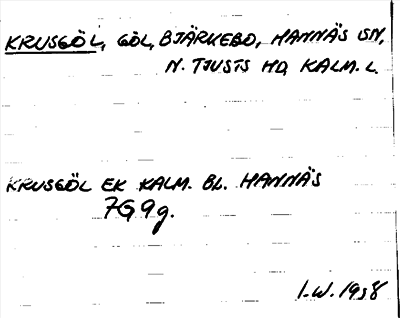 KRUSGÖL, GÖL, BJÄRKEBO, HANNÄS SN,
N. TJUSTS HD, KALM. L.
KRUSGÖL EK KALM. BL. HANNÄS
7G9g.
I.W. 1958